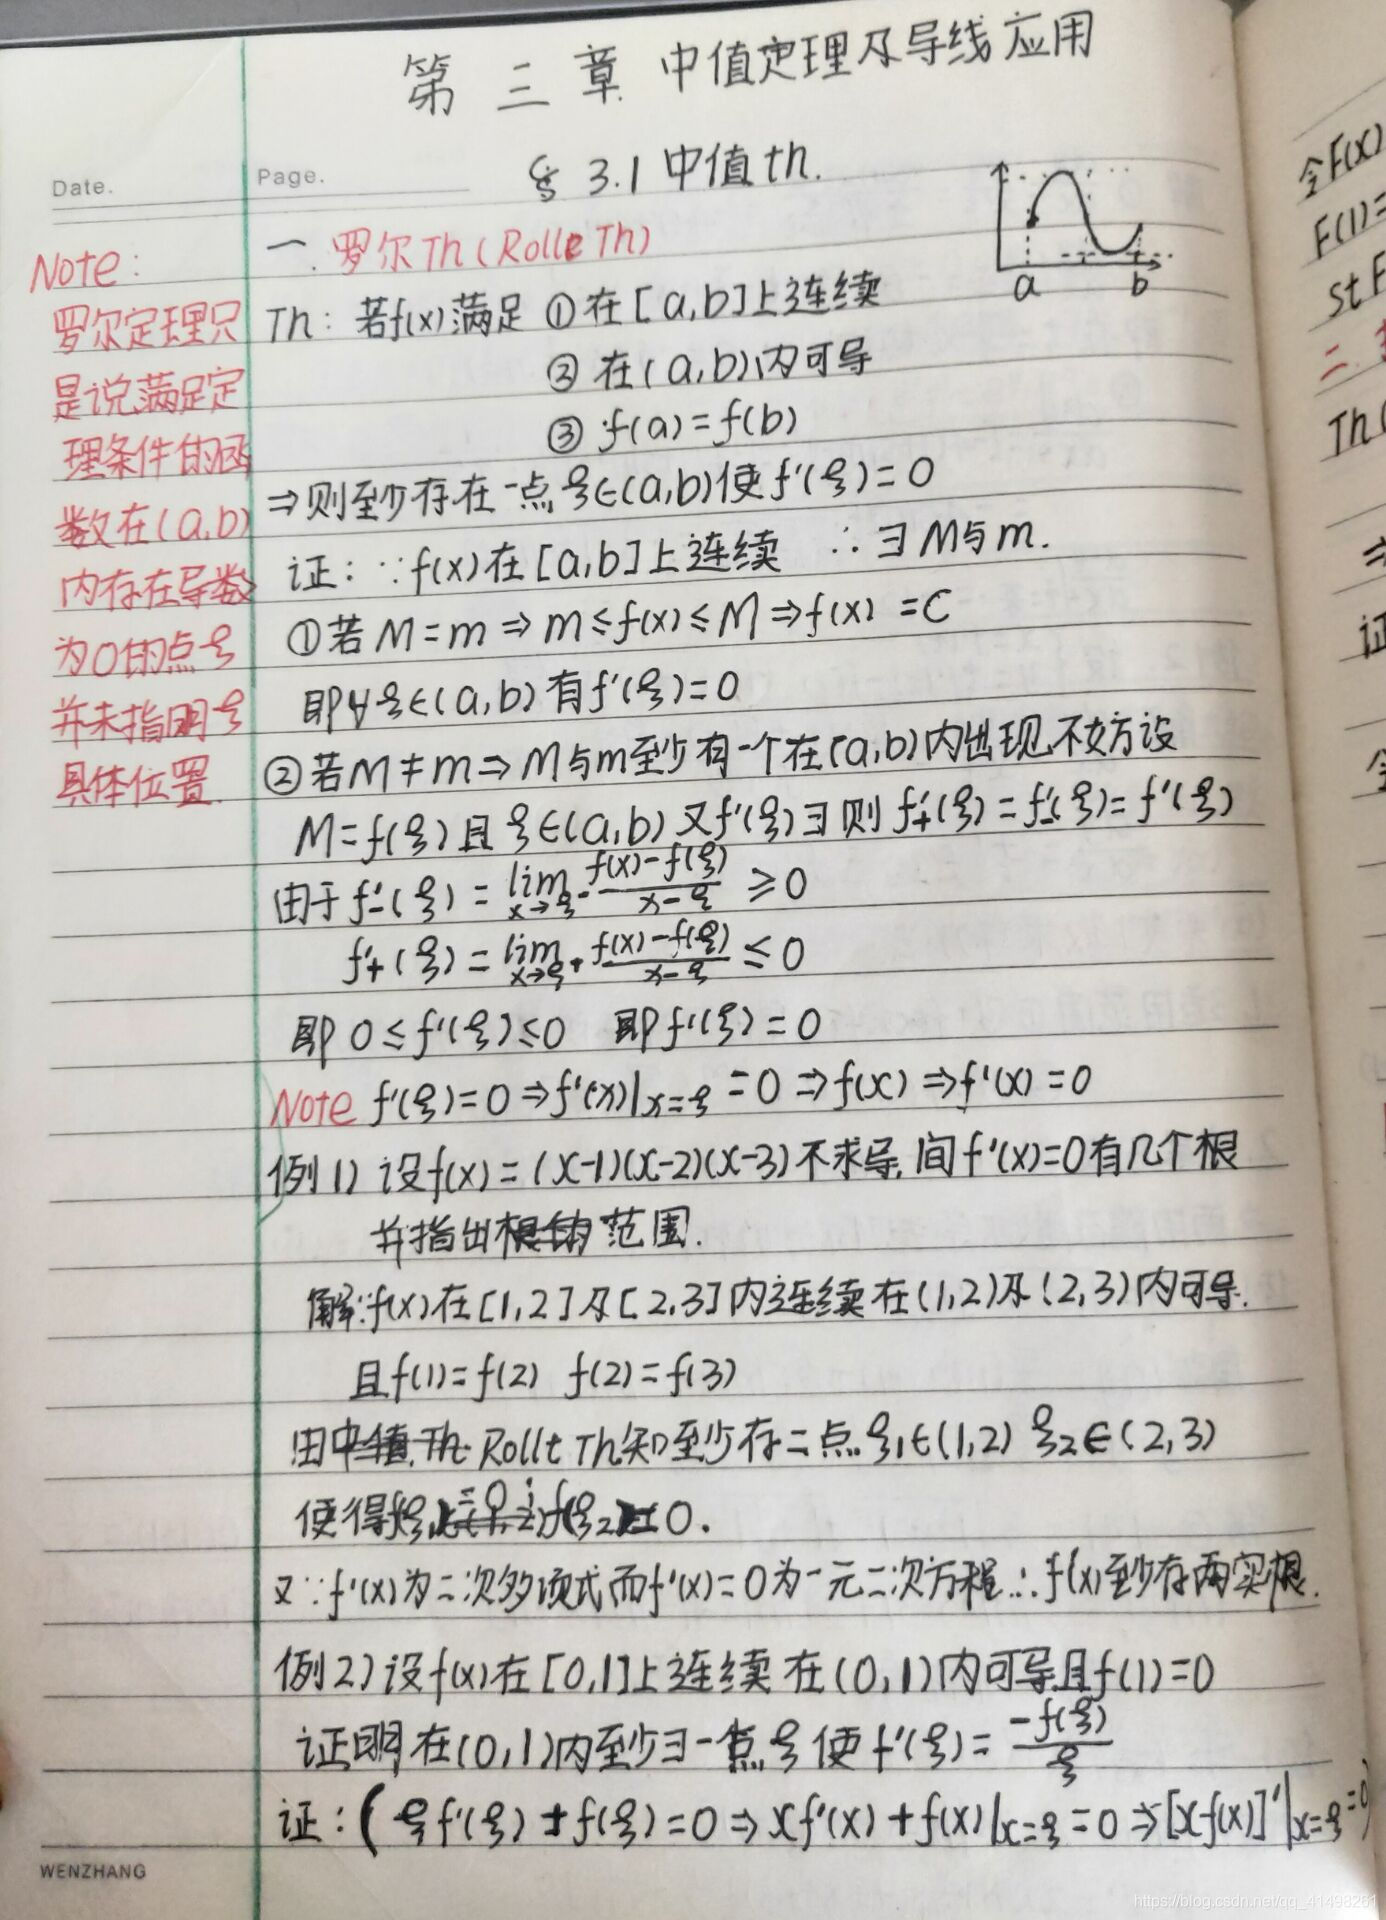 第三章 中值定理及导线应用
Date.
Page.
§ 3.1 中值th.
a b
Note:
罗尔定理只
是说满足定
理条件的函
数在(a,b)
内存在导数
为0的点ξ
并未指明ξ
具体位置.
一.罗尔Th(Rolle Th)
Th: 若f(x)满足 ①在[a,b]上连续
② 在(a,b)内可导
③ f(a)=f(b)
⇒则至少存在一点ξ∈(a,b)使f'(ξ)=0
证: ∵f(x)在[a,b]上连续 ∴∃M与m.
①若M=m⇒m≤f(x)≤M⇒f(x)=C
即∀ξ∈(a,b)有f'(ξ)=0
②若M≠m⇒M与m至少有一个在(a,b)内出现,不妨设
M=f(ξ)且ξ∈(a,b)又f'(ξ)∃则f'₊(ξ)=f'₋(ξ)=f'(ξ)
由于f'₋(ξ)=lim x→ξ⁻ (f(x)-f(ξ))/(x-ξ) ≥0
f'₊(ξ)=lim x→ξ⁺ (f(x)-f(ξ))/(x-ξ) ≤0
即0≤f'(ξ)≤0 即f'(ξ)=0
Note f'(ξ)=0⇒f'(x)|x=ξ=0⇒f(x)⇒f'(x)=0
例1) 设f(x)=(x-1)(x-2)(x-3)不求导,问f'(x)=0有几个根
并指出根的范围.
解:∵f(x)在[1,2]及[2,3]内连续在(1,2)及(2,3)内可导.
且f(1)=f(2) f(2)=f(3)
由Rolle Th知至少存二点ξ₁∈(1,2) ξ₂∈(2,3)
使得 =0.
又∵f'(x)为二次多项式而f'(x)=0为一元二次方程∴f(x)至少存两实根.
例2)设f(x)在[0,1]上连续在(0,1)内可导且f(1)=0
证明在(0,1)内至少∃一点ξ使f'(ξ)=-f(ξ)/ξ
证:(ξf'(ξ)+f(ξ)=0⇒xf'(x)+f(x)|x=ξ=0⇒[xf(x)]'|x=ξ=0)
WENZHANG
令F(x)
F(1)=
st F
二.
Th(
⇒
证
https://blog.csdn.net/qq_41498261